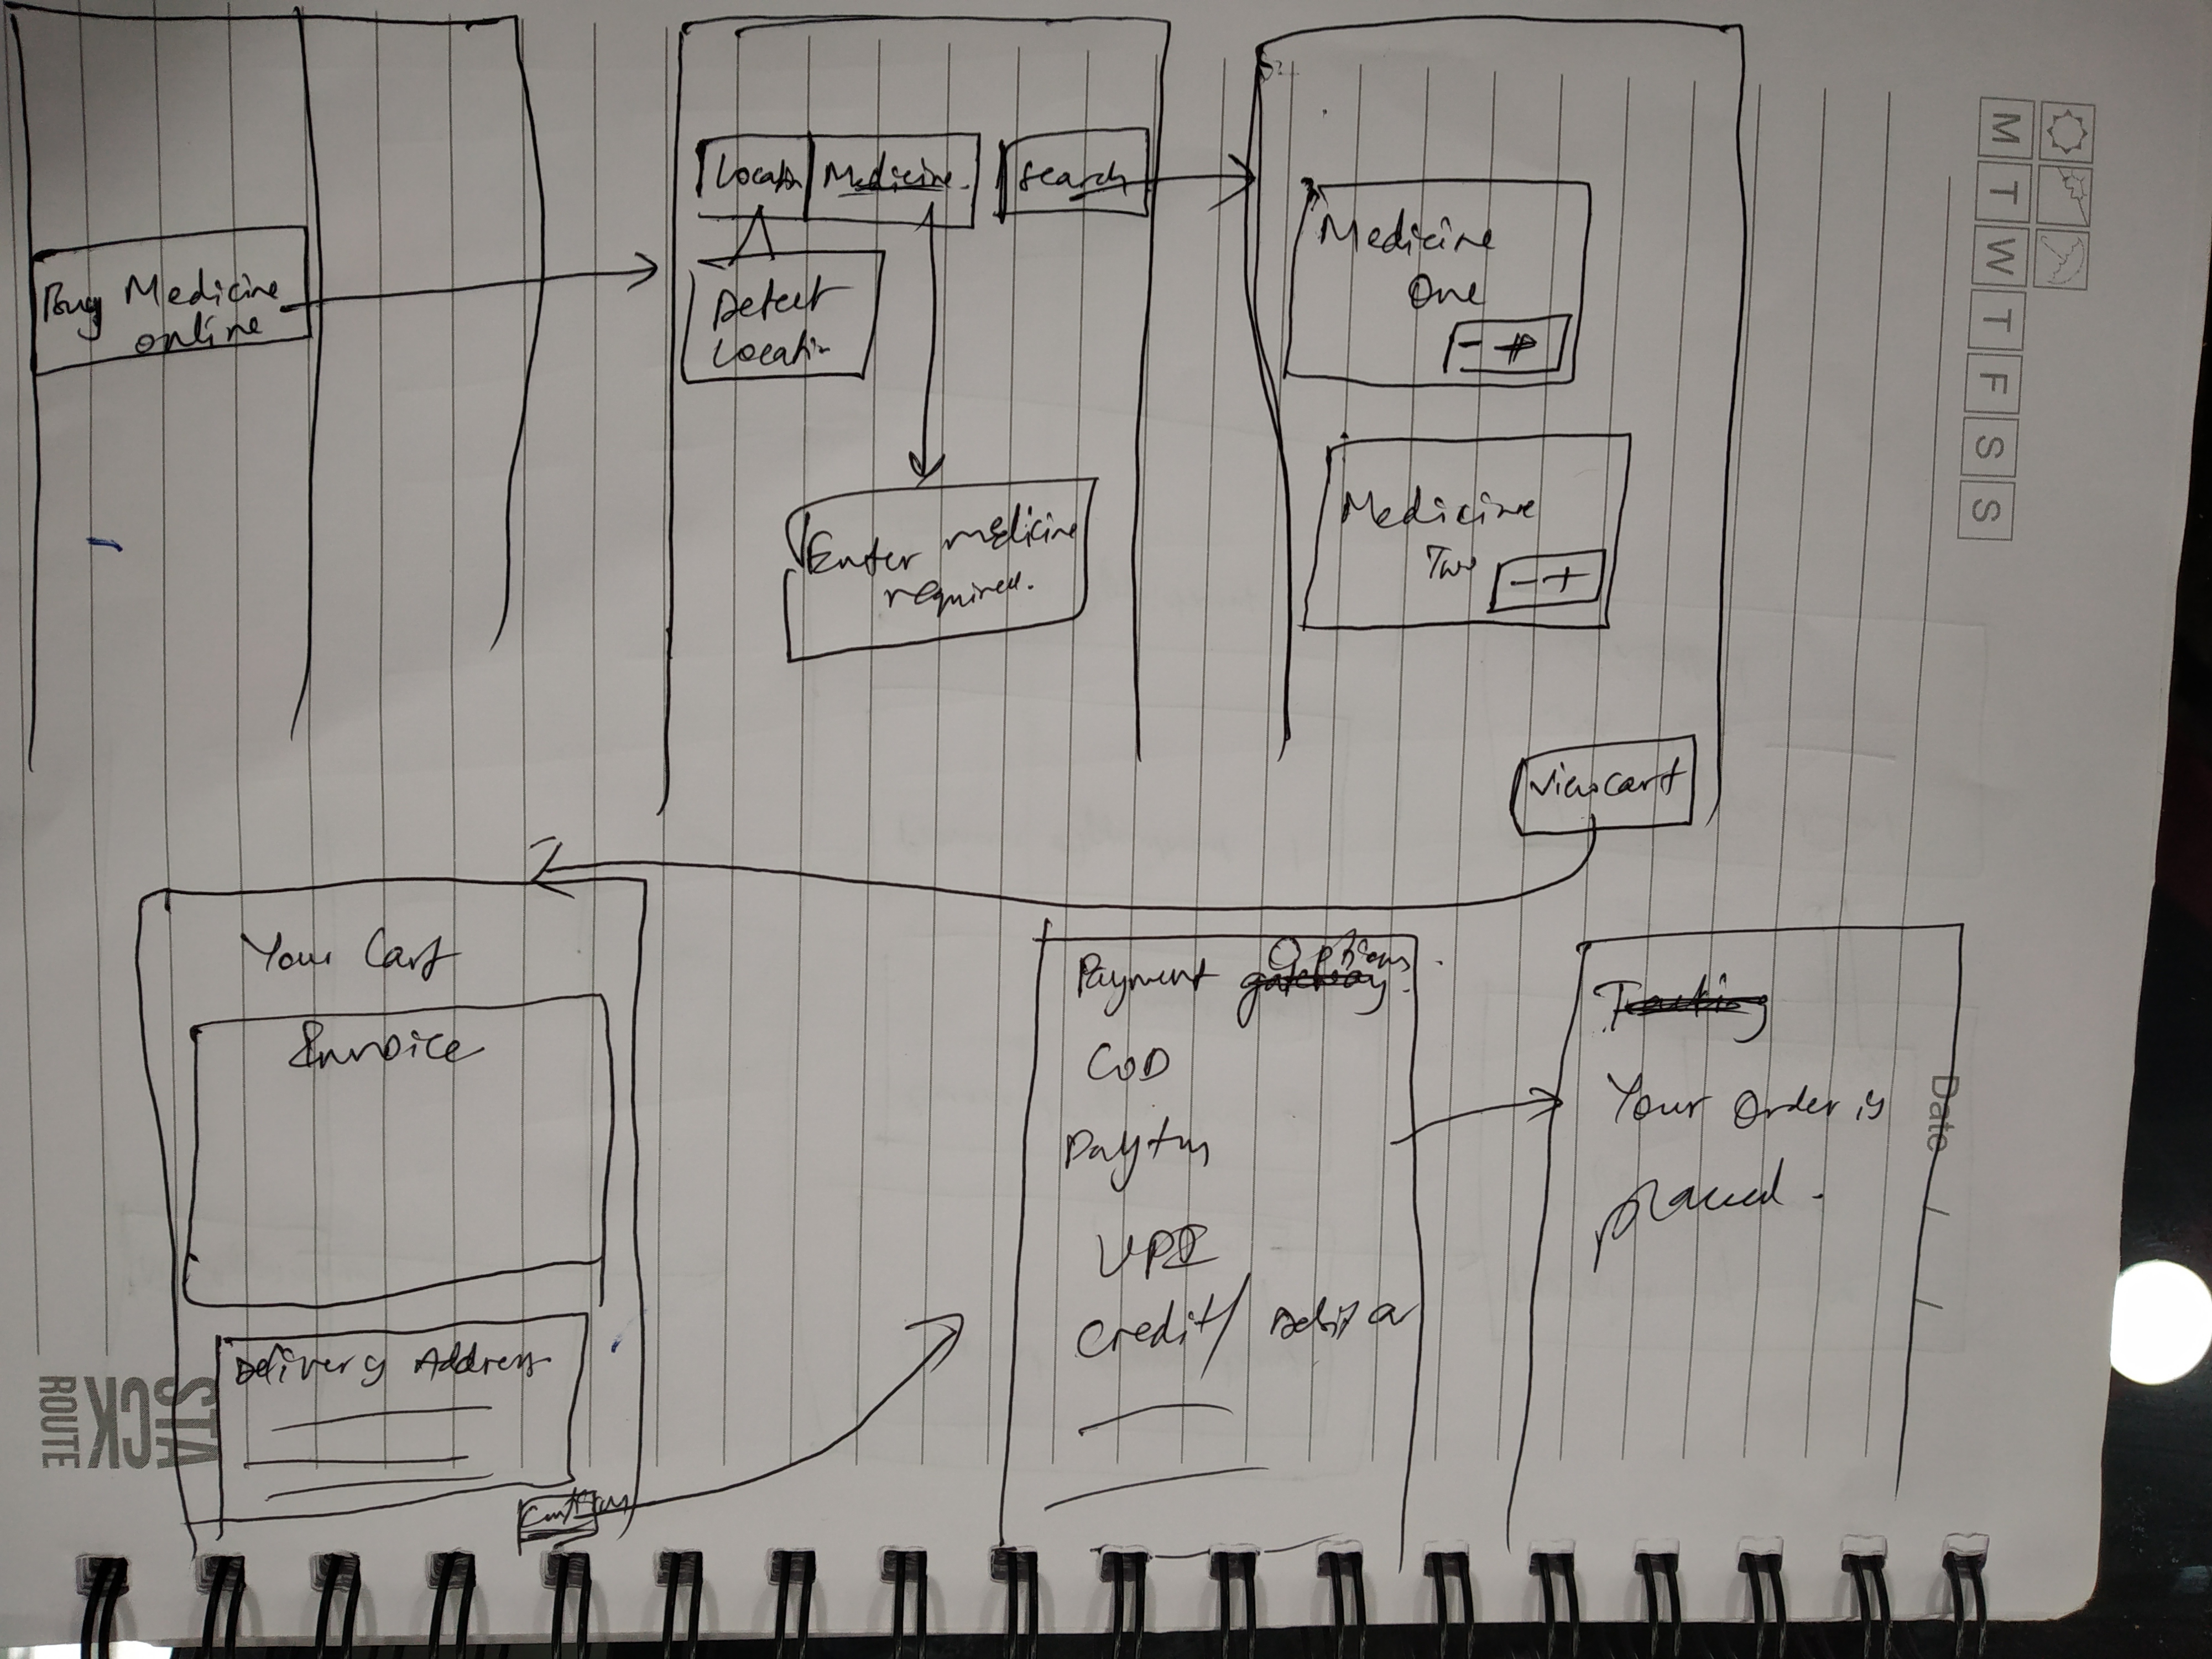 Buy Medicine
online
Locatin
Medicine.
Search
Detect
Locatin
Enter medicine
required.
Medicine
One
- +
Medicine
Two
- +
View cart
Your Cart
Invoice
Delivery Address
Payment Options.
gateway.
COD
Paytm
UPI
Credit/ Debit a
Tracking
Your Order is
placed.
M
T
W
T
F
S
S
Date
STA
CK
ROUTE